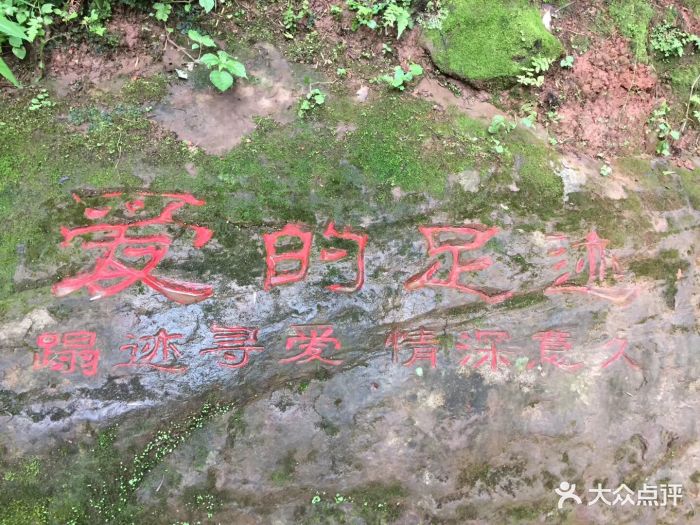 爱的足迹
蹋迹寻爱 情深意久
大众点评